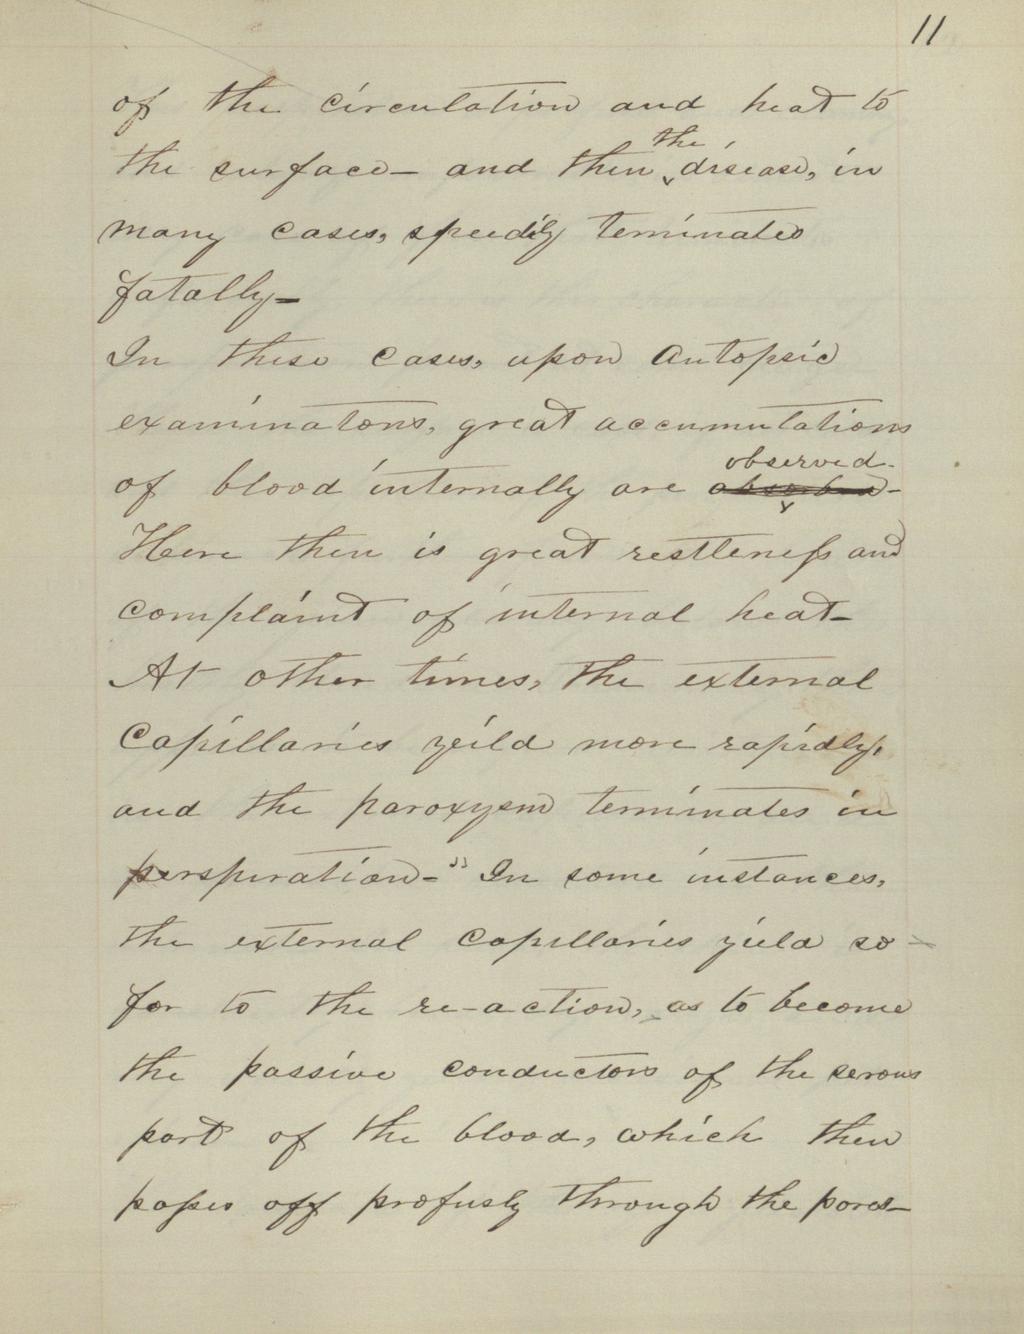 11
of the circulation and heat to
the surface— and then the disease, in
many cases, speedily terminates
fatally—
In these cases, upon Autopsic
examinatons, great accumulations
of blood internally are absorbed observed—
Here then is great restleness and
complaint of internal heat—
At other times, the external
Capillaries yeild more rapidly,
and the paroxysm terminates in
perspiration—" In some instances,
the external capillaries yield so
far to the re-action, as to become
the passive conductors of the serous
part of the blood, which then
passes off profusly through the pores—